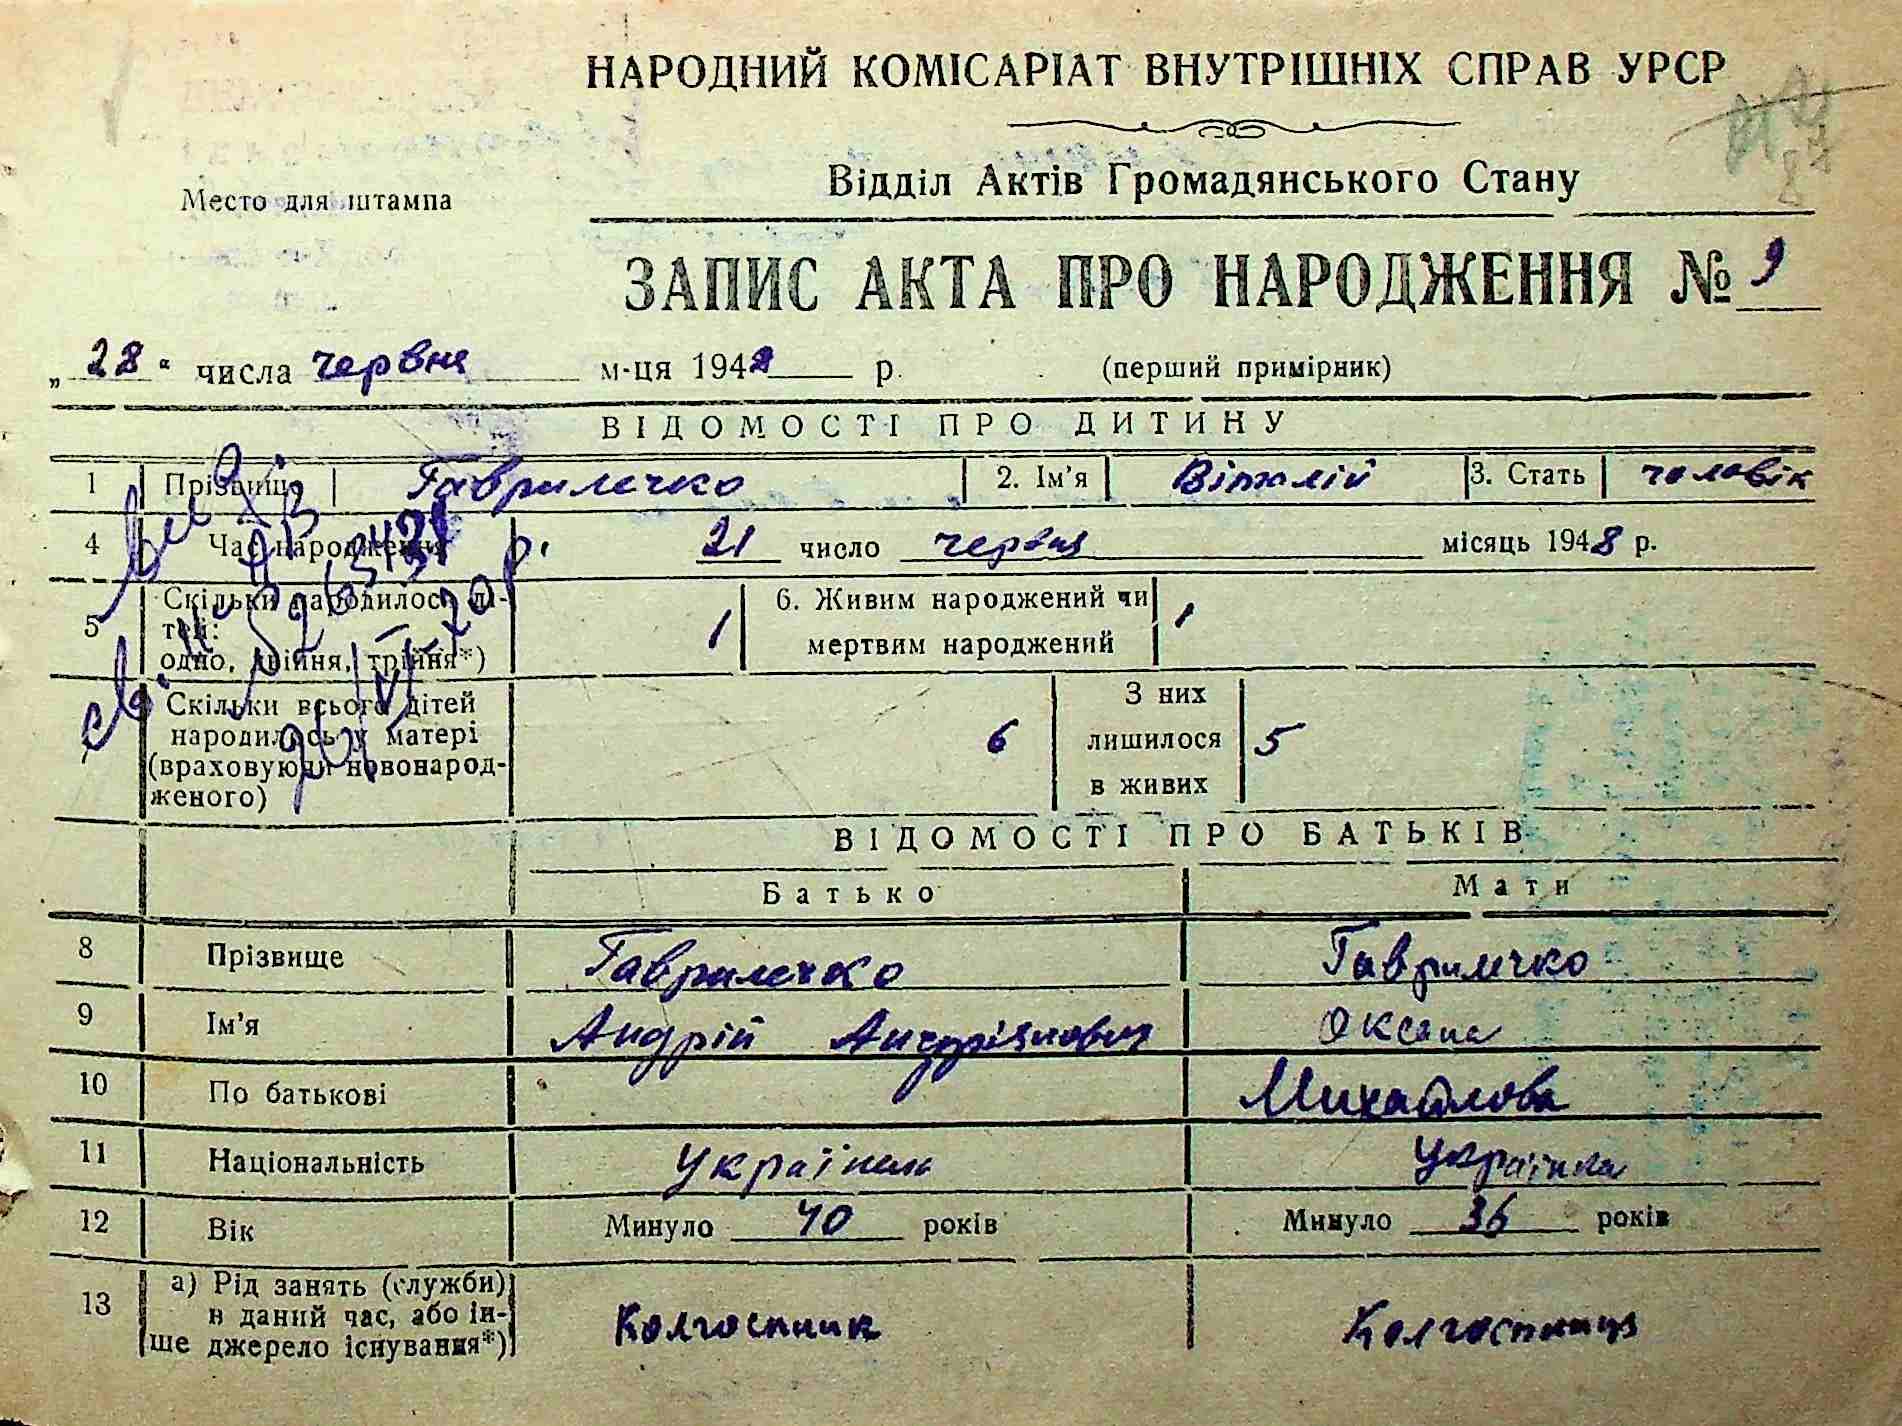 НАРОДНИЙ КОМІСАРІАТ ВНУТРІШНІХ СПРАВ УРСР
Место для штампа
Відділ Актів Громадянського Стану
ЗАПИС АКТА ПРО НАРОДЖЕННЯ № 9
„28“ числа червня м-ця 1948 р. (перший примірник)
ВІДОМОСТІ ПРО ДИТИНУ
1 Прізвище Гаврилечко 2. Ім'я Віталій 3. Стать чоловік
4 Час народження 21 число червня місяць 1948 р.
5 Скільки народилося ді-
тей:
одно, двійня, трійня*) 1 6. Живим народжений чи
мертвим народжений 1
Скільки всього дітей
народилось у матері
(враховуючи новонарод-
женого) 6 З них
лишилося
в живих 5
ВІДОМОСТІ ПРО БАТЬКІВ
Батько Мати
8 Прізвище Гаврилечко Гаврилечко
9 Ім'я Андрій Андріянович Оксана
10 По батькові Михайлова
11 Національність Українець Українка
12 Вік Минуло 40 років Минуло 36 років
13 а) Рід занять (служби)
в даний час, або ін-
ше джерело існування*) Колгоспник Колгоспниця